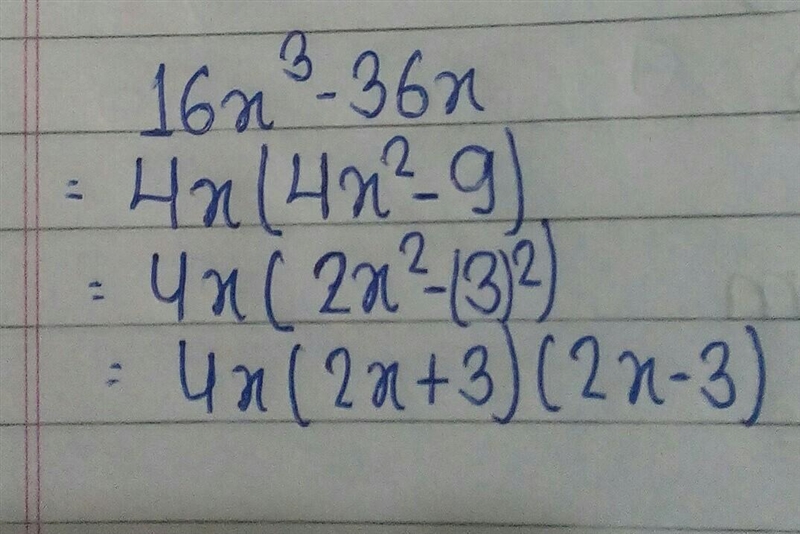 16x³ - 36x
= 4x(4x² - 9)
= 4x(2x² - (3)²)
= 4x(2x + 3)(2x - 3)